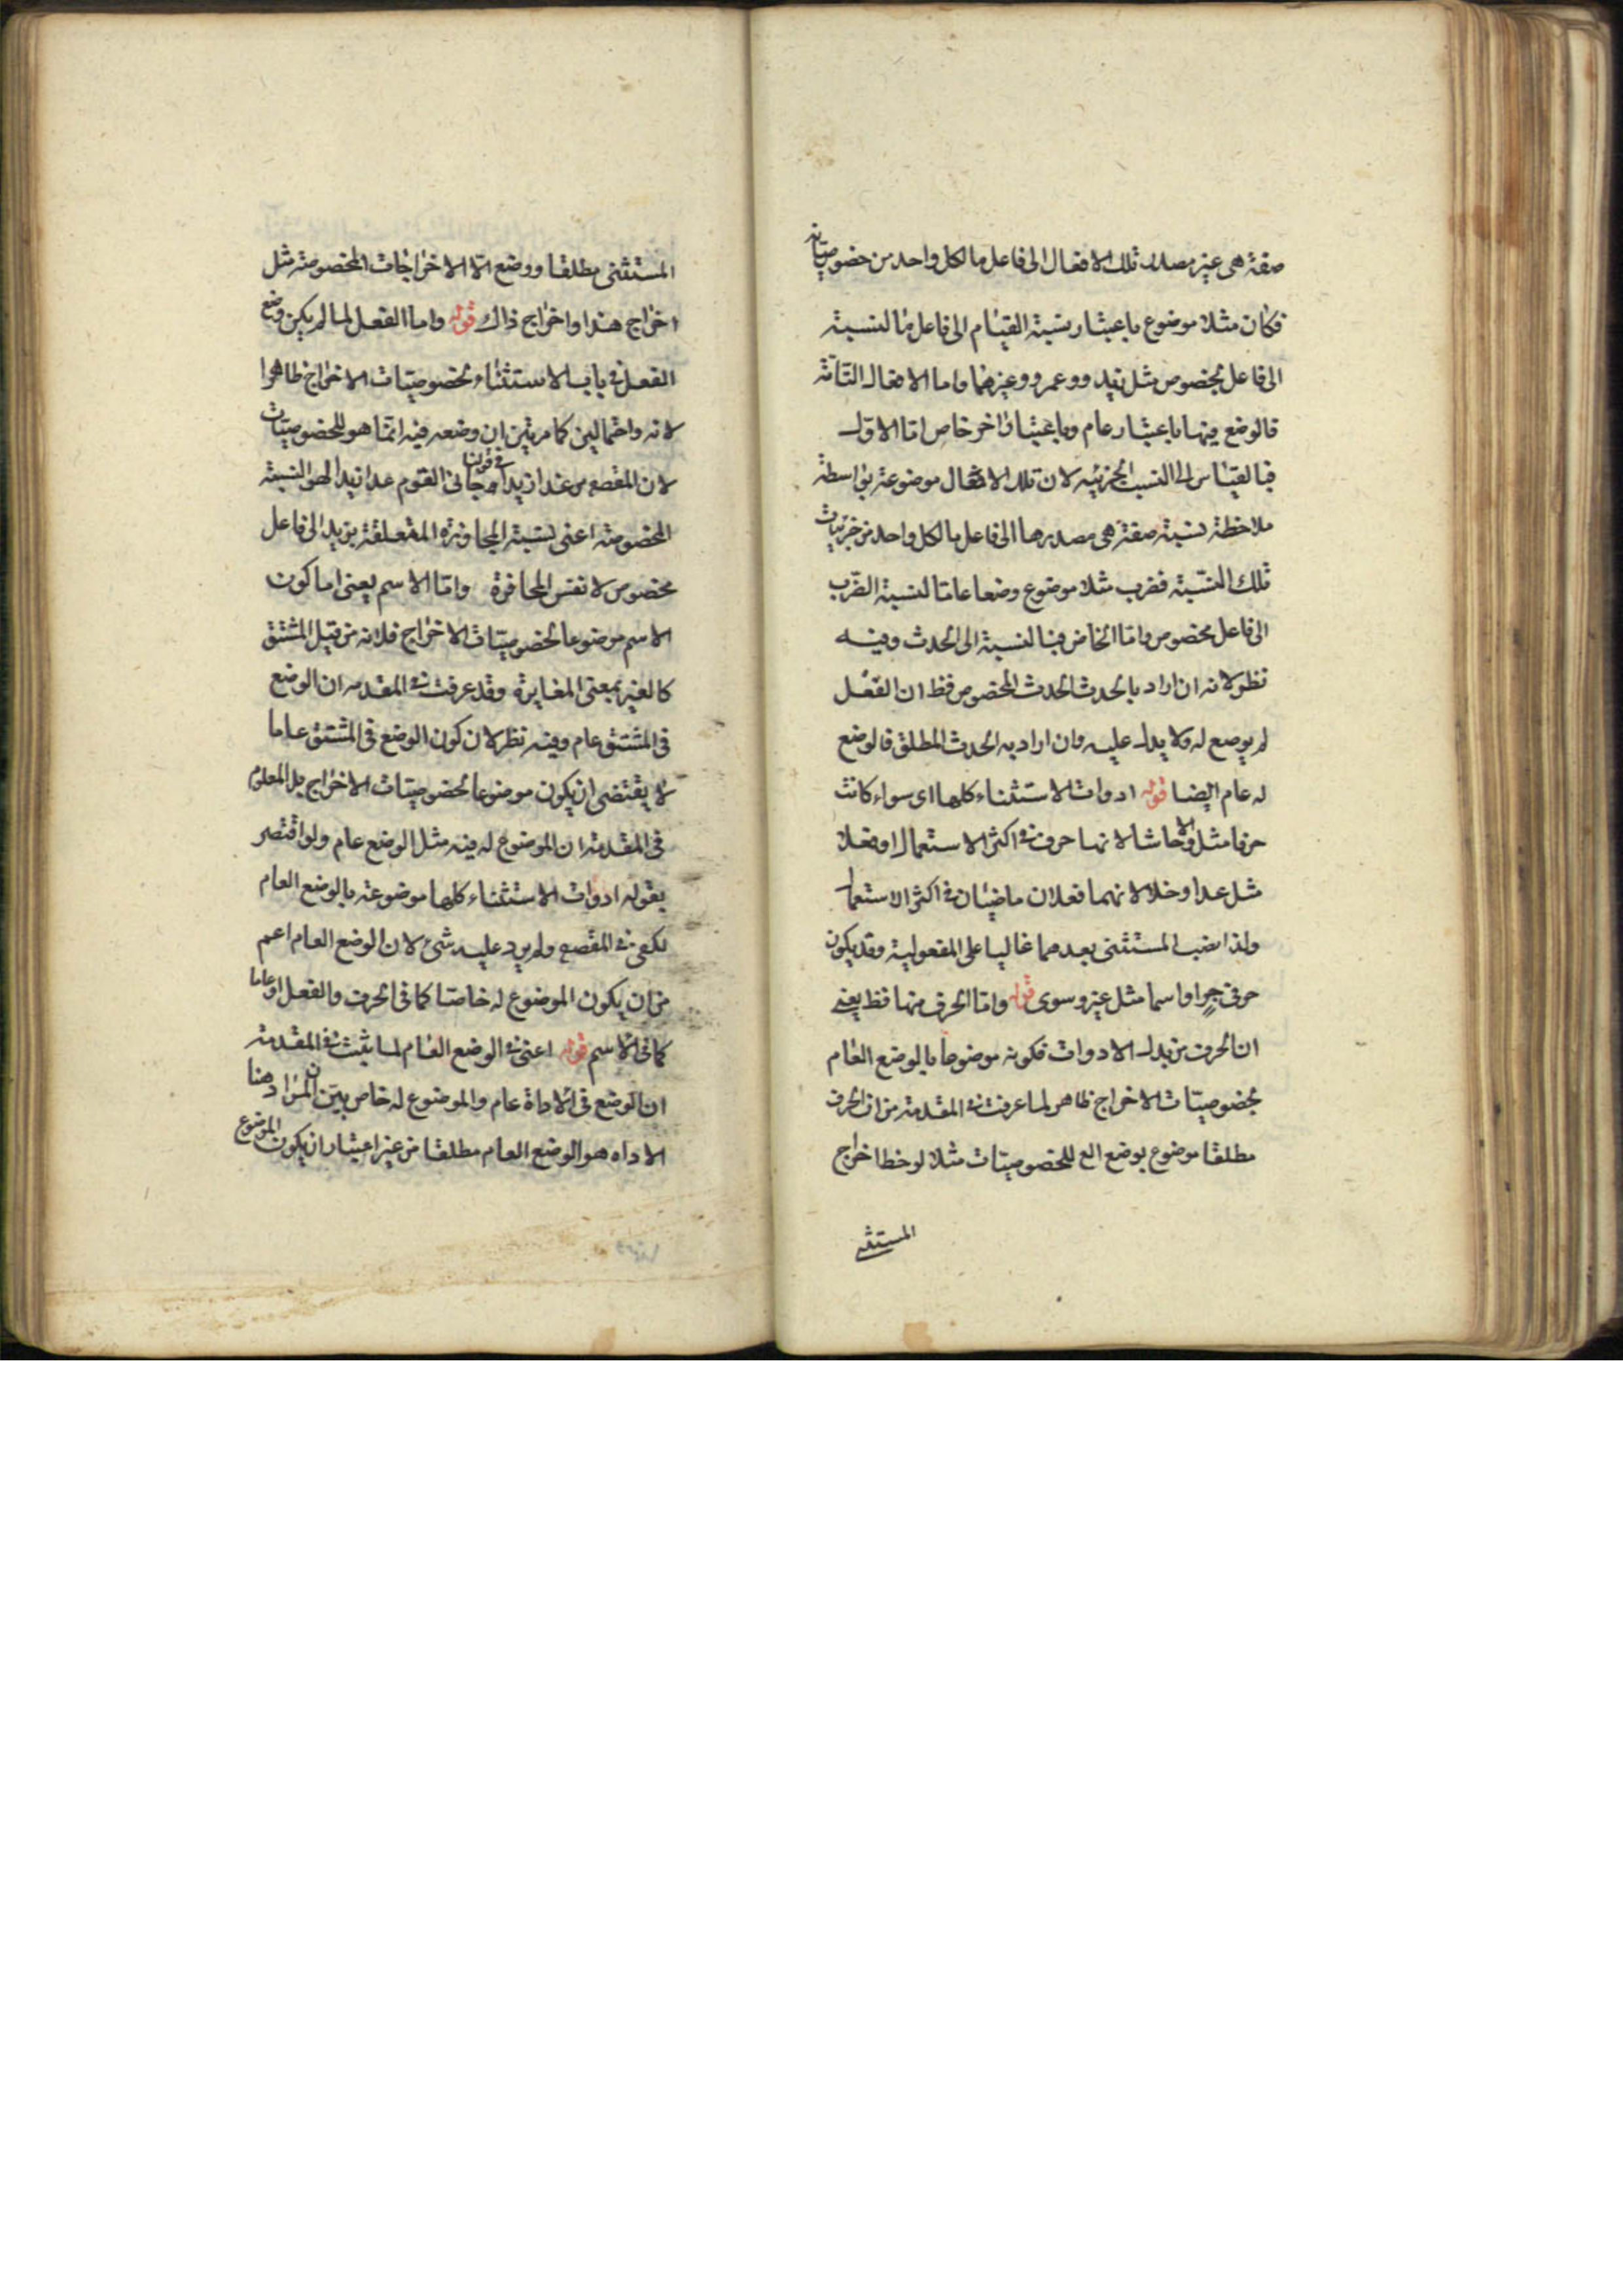 صفة هى غير مصدر تلك الافعال الى فاعل ما لكل واحد من خصوصياته
فكان مثلا موضوع باعتبار نسبة القيام الى فاعل ما لنسبة
الى فاعل مخصوص مثل زيد وعمرو وغيرهما واما الافعال التامة
فالوضع فيها باعتبار عام وباعتبار اخر خاص اما الاول
فبالقياس الى النسب الجزئيه لان تلك الافعال موضوعة بواسطة
ملاحظة نسبة صفة هى مصدرها الى فاعل ما لكل واحد من جزئيات
تلك النسبة فضرب مثلا موضوع وضعا عاما لنسبة الضرب
الى فاعل مخصوص واما الخاص فبالنسبة الى الحدث وفيه
نظر لانه ان اراد بالحدث الحدث المخصوص فظ ان الفعل
لم يوضع له ولا يدل عليه وان اراد به الحدث المطلق فالوضع
له عام ايضا قوله ادوات الاستثناء كلها اى سواء كانت
حرفا مثل الا وحاشا لانها حرف فى اكثر الاستعمال او فعلا
مثل عدا وخلا لانهما فعلان ماضيان فى اكثر الاستعمال
ولذا نصب المستثنى بعدهما غالبا على المفعولية وقد يكون
حرفى جر او اسما مثل غير وسوى قوله واما الحرف منها فظ يعنى
ان الحرف من تلك الادوات فكونه موضوعا بالوضع العام
لخصوصيات الاخراج ظاهر لما عرفت فى المقدمة من ان الحرف
مطلقا موضوع بوضع الع للخصوصيات مثلا لوحظ اخراج
المستثنى
المستثنى مطلقا ووضع الا الاخراجات المخصوصة مثل
اخراج هذا واخراج ذاك قوله واما الفعل لما لم يكن وضع
الفعل فى باب الاستثناء لخصوصيات الاخراج ظاهرا
لانه واحتمالين كما مر بين ان وضعه فيه انما هو للخصوصيات
لان المقصود من عدا زيدا فى قولنا جانى القوم عدا زيدا هو النسبة
المخصوصة اعنى نسبة المجاوزة المتعلقة بزيد الى فاعل
مخصوص لا نفس المجاوزة واما الاسم يعنى اما كون
الاسم موضوعا لخصوصيات الاخراج فلانه من قبيل المشتق
كالغير بمعنى المغايرة وقد عرفت فى المقدمه ان الوضع
فى المشتق عام وفيه نظر لان كون الوضع فى المشتق عاما
لا يقتضى ان يكون موضوعا لخصوصيات الاخراج بل المعلوم
فى المقدمة ان الموضوع له فيه مثل الوضع عام ولو اقتصر
بقوله ادوات الاستثناء كلها موضوعة بالوضع العام
لكفى فى المقصود ولم يرد عليه شئ لان الوضع العام اعم
من ان يكون الموضوع له خاصا كما فى الحرف والفعل او عاما
كما فى الاسم قوله اعنى فى الوضع العام لما ثبت فى المقدمة
ان الوضع فى الاداة عام والموضوع له خاص بين ان المراد هنا
الاداه هو الوضع العام مطلقا من غير اعتبار ان يكون الموضوع